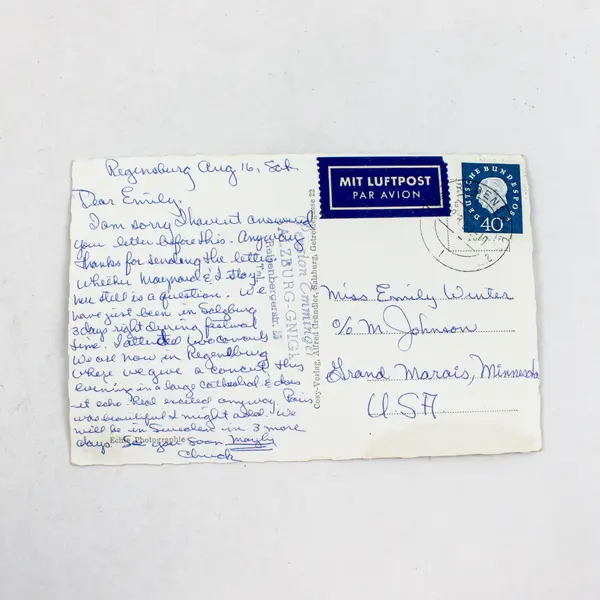 Regensburg Aug 16, Sat.
Dear Emily,
I am sorry I havent answered
your letter before this. Anyway
thanks for sending the letter.
Whether Maynard & I stay
here still is a question. We
have just been in Salzburg
3 days right during festival
time. I attended two concerts
We are now in Regensburg
where we give a concert this
evening in a large cathedral & does
it echo. Real excited anyway. Paris
was beautiful I might add. We
will be in Sweden in 3 more
days. See you Soon Maybe
Chuck
Echte Photographie
Pension Emminger
SALZBURG-GNIGL
Reisenbergerstr.
Tel.
Cosy-Verlag, Alfred Gründler, Salzburg, Getreidegasse 22
MIT LUFTPOST
PAR AVION
DEUTSCHE BUNDESPOST
40
Miss Emily Winter
c/o M. Johnson
Grand Marais, Minnesota
USA